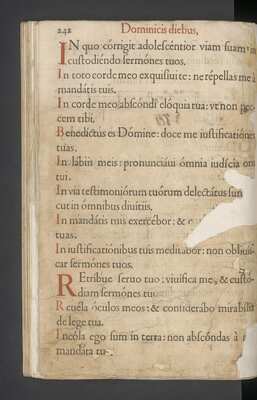 242 Dominicis diebus,
IN quo córrigit adolescéntior viam suam: in
custodiéndo sermónes tuos.
In toto corde meo exquisiui te: ne répellas me à
mandátis tuis.
In corde meo abscóndi elóquia tua: vt non pec-
cem tibi.
Benedíctus es Dómine: doce me iustificatiónes
tuas.
In lábiis meis: pronunciáui ómnia iudícia
tui.
In via testimoniórum tuórum delectátus sun
cut in ómnibus diuítiis.
In mandátis tuis exercébor: &
tuas.
In iustificatiónibus tuis meditábor: non obliuis-
car sermónes tuos.
REtríbue seruo tuo, viuífica me, & custó-
diam sermónes tuos
Reuéla óculos meos: & considerábo mirabília
de lege tua.
Incola ego sum in terra: non abscóndas à
mandáta tua.